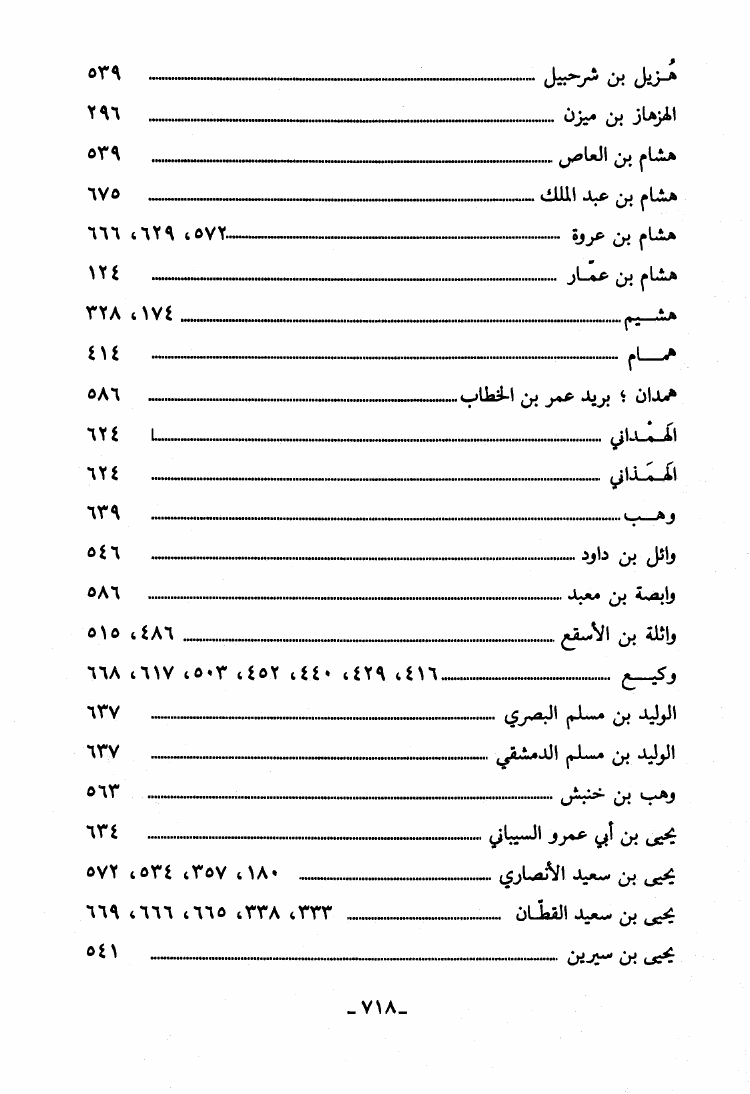 هُـزيل بن شرحبيل ........ ٥٣٩
الهزهاز بن ميزن ........ ٢٩٦
هشام بن العاص ........ ٥٣٩
هشام بن عبد الملك ........ ٦٧٥
هشام بن عروة ........ ٥٧٢، ٦٢٩، ٦٦٦
هشام بن عمّـار ........ ١٢٤
هشـــيم ........ ١٧٤، ٣٢٨
همـــام ........ ٤١٤
همدان ؛ بريد عمر بن الخطاب ........ ٥٨٦
الهَـمْـداني ........ ٦٢٤
الهَـمَـذاني ........ ٦٢٤
وهـــب ........ ٦٣٩
وائل بن داود ........ ٥٤٦
وابصة بن معبد ........ ٥٨٦
واثلة بن الأسقع ........ ٤٨٦، ٥١٥
وكيـــع ........ ٤١٦، ٤٢٩، ٤٤٠، ٤٥٢، ٥٠٣، ٦١٧، ٦٦٨
الوليد بن مسلم البصري ........ ٦٣٧
الوليد بن مسلم الدمشقي ........ ٦٣٧
وهب بن خنبش ........ ٥٦٣
يحيى بن أبي عمرو السيباني ........ ٦٣٤
يحيى بن سعيد الأنصاري ........ ١٨٠، ٣٥٧، ٥٣٤، ٥٧٢
يحيى بن سعيد القطّـان ........ ٣٣٣، ٣٣٨، ٦٦٥، ٦٦٦، ٦٦٩
يحيى بن سيرين ........ ٥٤١
ـ ٧١٨ ـ